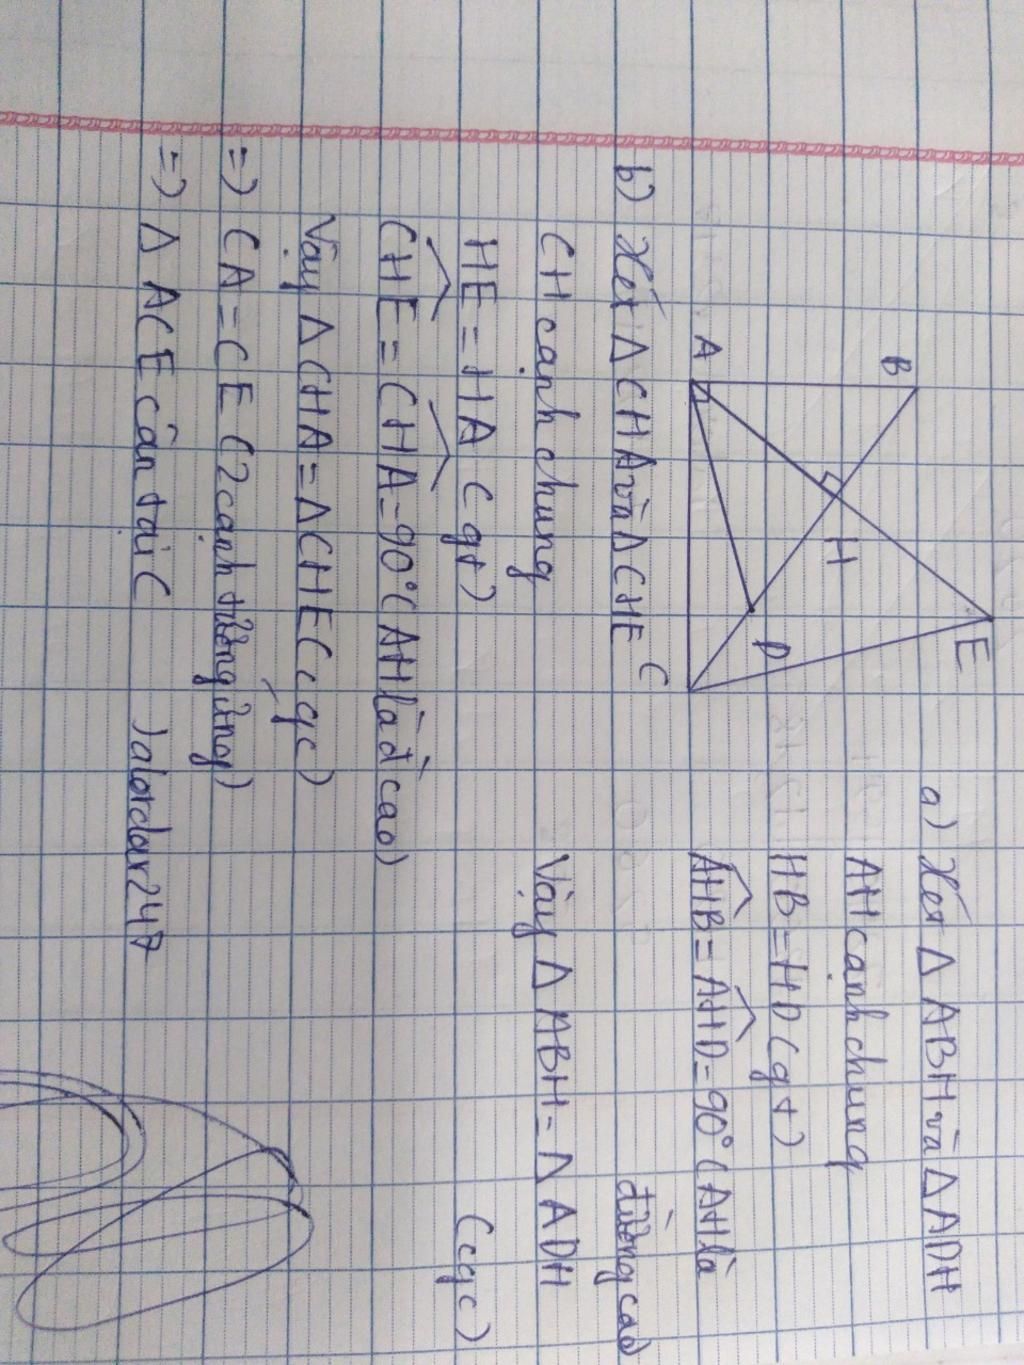 B
E
H
D
A
C
a) Xét Δ ABH và Δ ADH
AH cạnh chung
HB = HD (gt)
AHB = AHD = 90° (AH là
đường cao)
Vậy Δ ABH = Δ ADH
(cgc)
b) Xét Δ CHA và Δ CHE
CH cạnh chung
HE = HA (gt)
CHE = CHA = 90° (AH là đ cao)
Vậy Δ CHA = Δ CHE (cgc)
=) CA = CE (2 cạnh tương ứng)
=) Δ ACE cân tại C